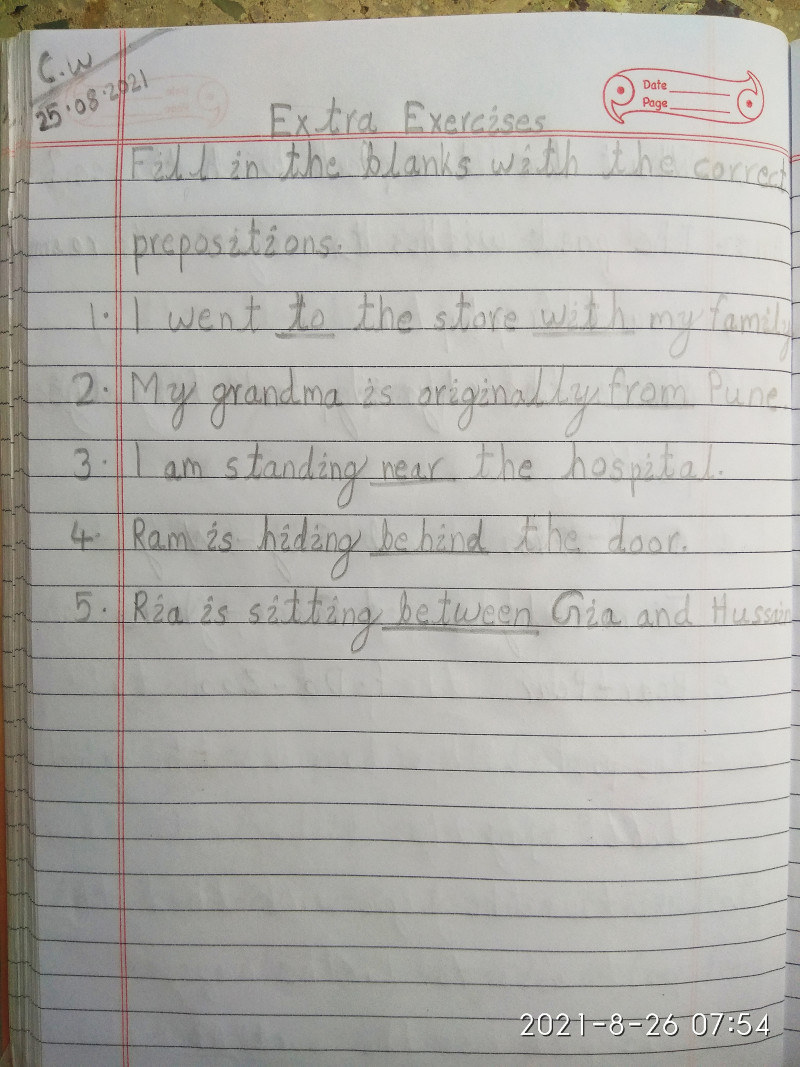 C.W
25.08.2021
Date
Page
Extra Exercises
Fill in the blanks with the correct
prepositions.
1. I went to the store with my family
2. My grandma is originally from Pune
3. I am standing near the hospital.
4. Ram is hiding behind the door.
5. Ria is sitting between Gia and Hussain
2021-8-26 07:54